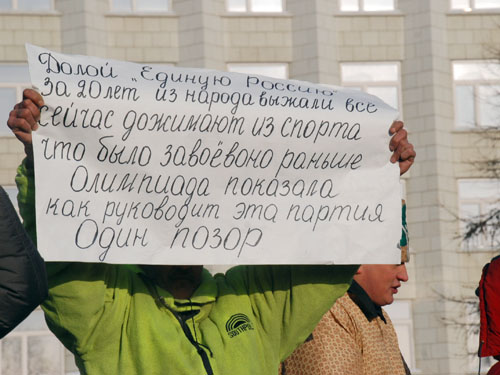 Долой „Единую Россию"
За 20 лет из народа выжали все
сейчас дожимают из спорта
что было завоёвоно раньше
Олимпиада показала
как руководит эта партия
Один позор